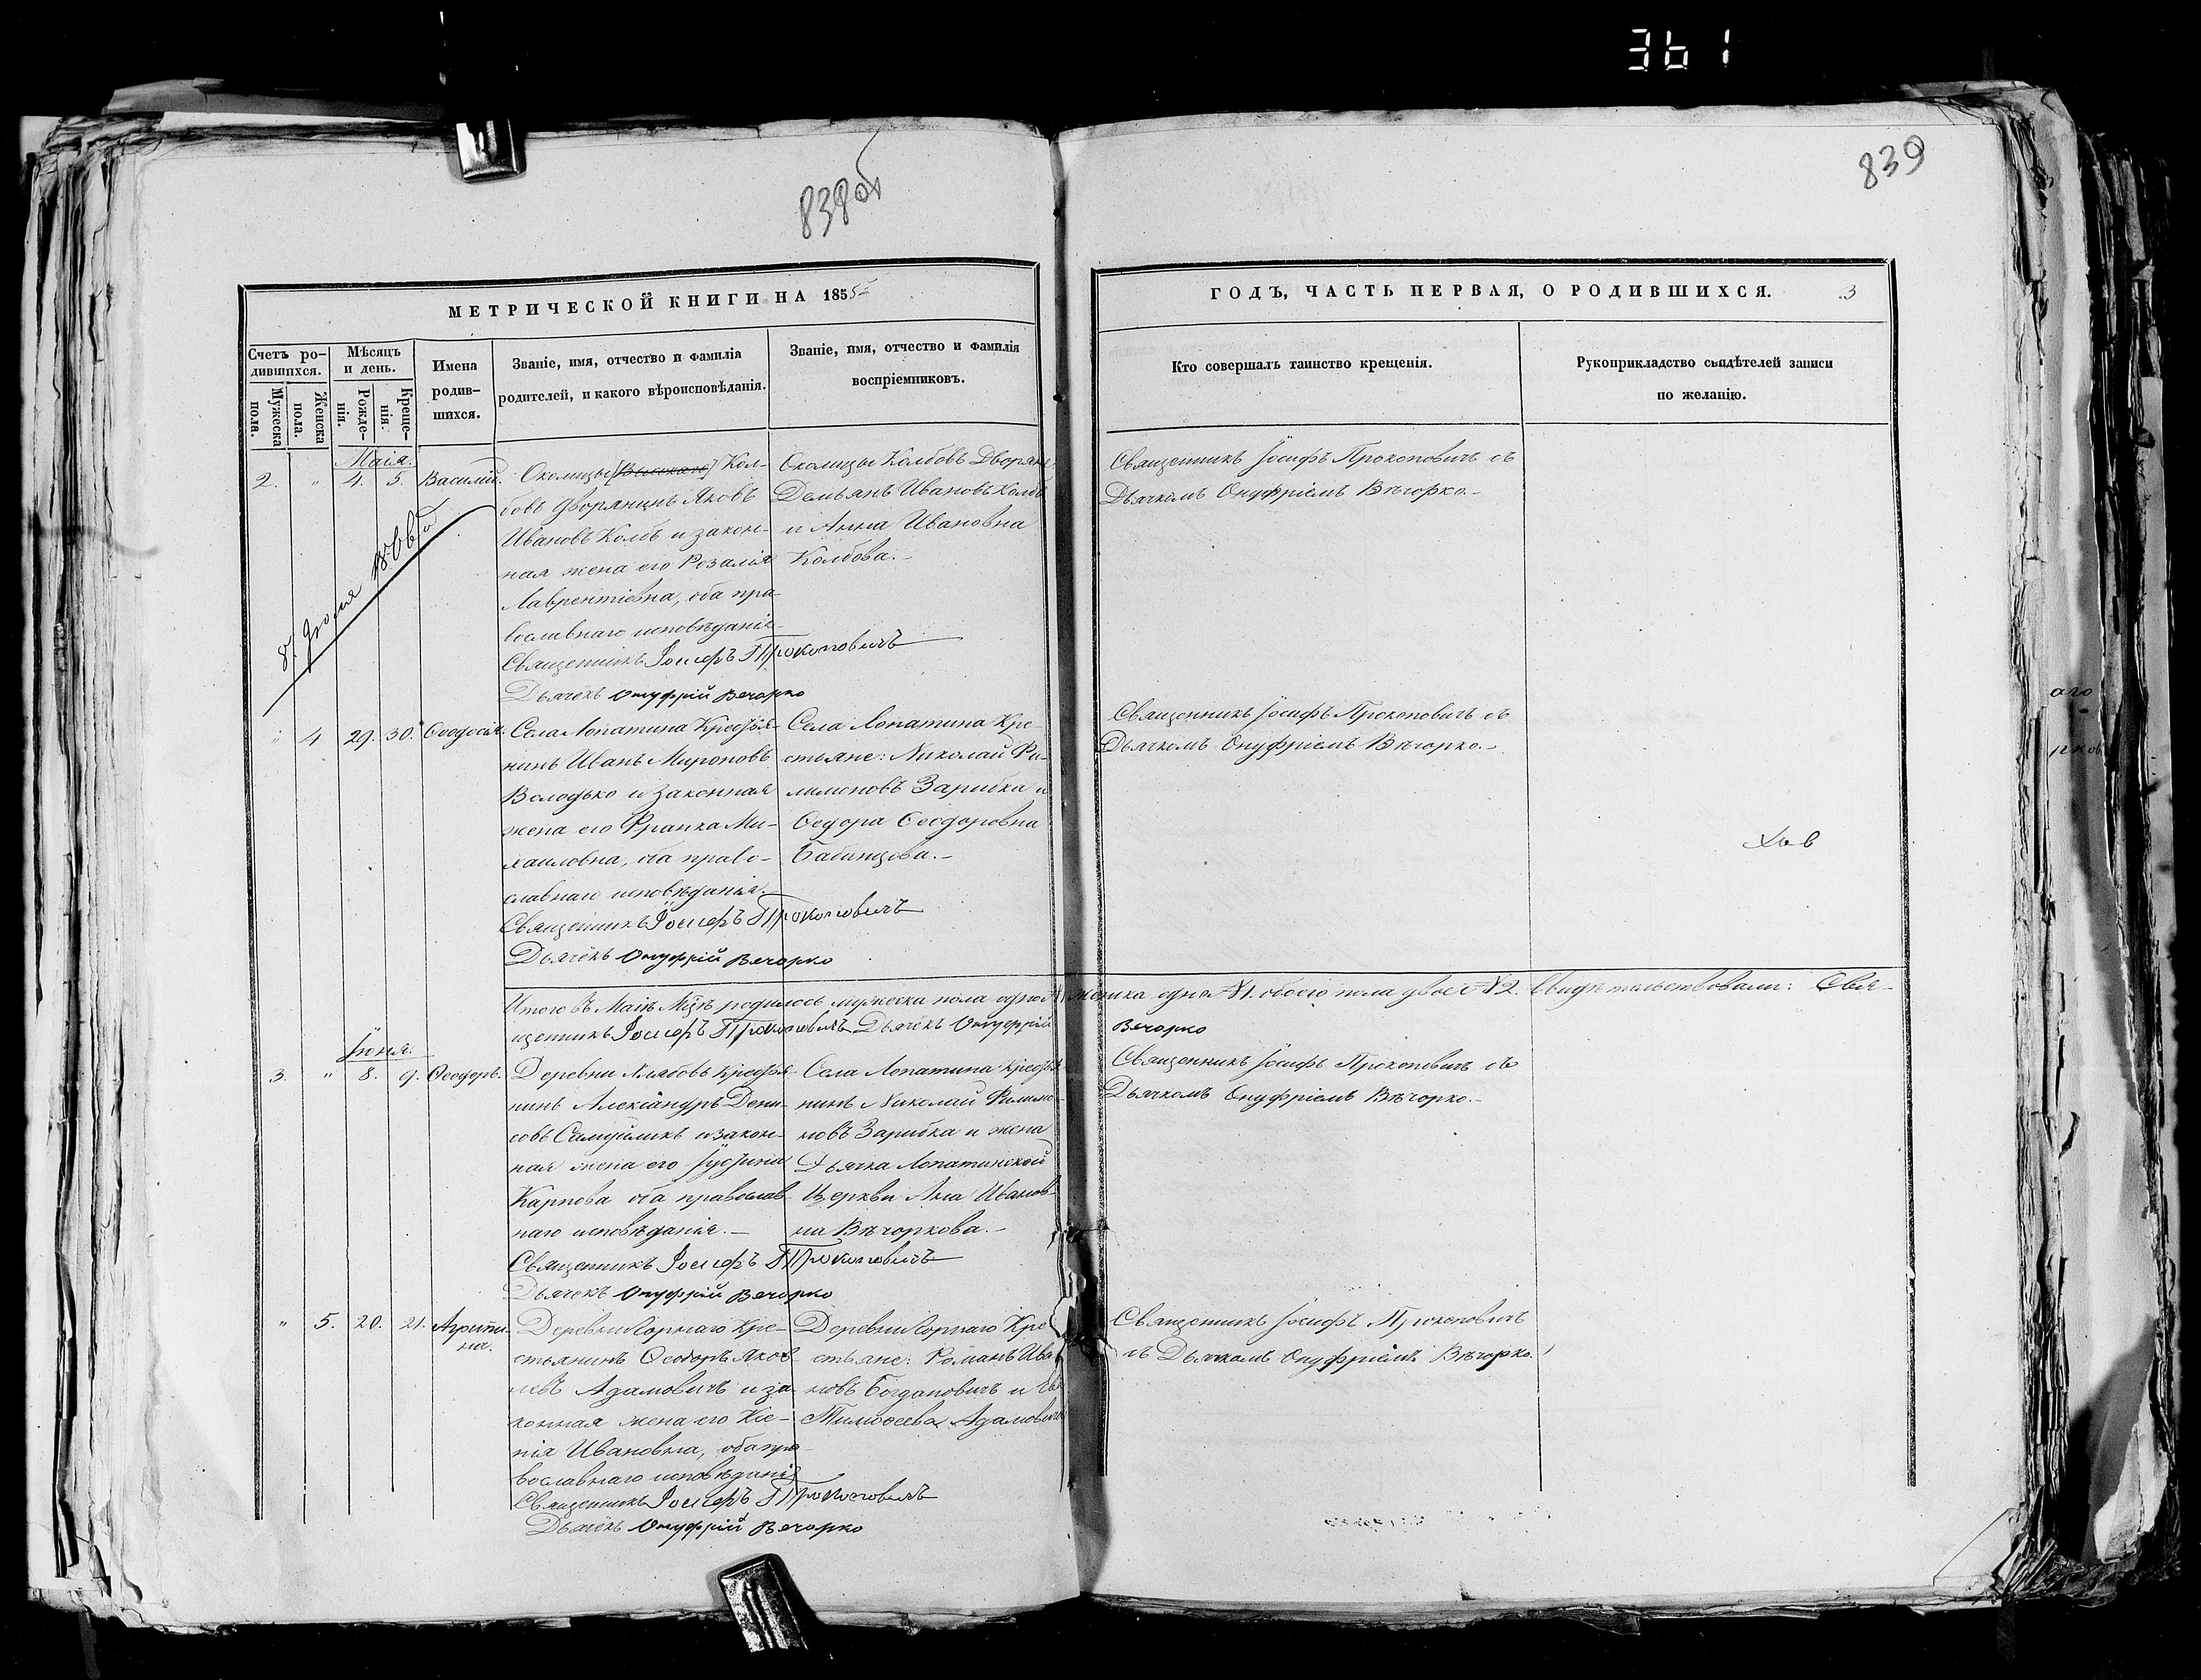 361
839
838об
МЕТРИЧЕСКОЙ КНИГИ НА 1855
ГОДЪ, ЧАСТЬ ПЕРВАЯ, О РОДИВШИХСЯ. 3
Счетъ ро-
дившихся.
Мужеска
пола.
Женска
пола.
Мѣсяцъ
и день.
Рожде-
нія.
Креще-
нія.
Имена
родив-
шихся.
Званіе, имя, отчество и фамилія
родителей, и какого вѣроисповѣданія.
Званіе, имя, отчество и фамилія
воспріемниковъ.
Кто совершалъ таинство крещенія.
Рукоприкладство свидѣтелей записи
по желанію.
Маія.
2. " 4. 5. Василій.
Околицы Кол-
бовъ дворянинъ Яковъ
Ивановъ Колбъ и закон-
ная жена его Розалія
Лаврентіевна, оба пра-
вославнаго исповѣданія
Священникъ Іосифъ Прокоповичъ
Дьячекъ Онуфрій Вечорко
Околицы Колбовъ Дворяне:
Демьянъ Ивановъ Колбъ
и Анна Ивановна
Колбова.-
Священникъ Іосифъ Прокоповичъ съ
Дьячкомъ Онуфріемъ Вѣчорко.-
" 4 29. 30. Ѳеодосія.
Села Лопатина Крестья-
нинъ Иванъ Мироновъ
Володько и законная
жена его Франка Ми-
хаиловна, оба право-
славнаго исповѣданія.-
Священникъ Іосифъ Прокоповичъ
Дьячекъ Онуфрій Вечорко
Села Лопатина Кре-
стьяне: Николай Фи-
лимоновъ Зарибка и
Ѳедора Ѳеодоровна
Бабинцова.-
Священникъ Іосифъ Прокоповичъ съ
Дьячкомъ Онуфріемъ Вѣчорко.-
Итого въ Маіѣ Мцѣ родилось мужеска пола одно №1 женска одно №1. обоего пола двое №2. Свидѣтельствовали: Свя-
щенникъ Іосифъ Прокоповичъ Дьячекъ Онуфрій Вечорко
Іюня.
3. " 8. 9. Ѳеодоръ.
Деревни Клябовъ Крестья-
нинъ Александръ Дени-
совъ Самуйликъ и закон-
ная жена его Іустина
Карпова оба православ-
наго исповѣданія.-
Священникъ Іосифъ Прокоповичъ
Дьячекъ Онуфрій Вечорко
Села Лопатина Крестья-
нинъ Николай Филимо-
новъ Зарибка и жена
Дьячка Лопатинской
Церкви Ана Иванов-
на Вѣчоркова.-
Священникъ Іосифъ Прокоповичъ съ
Дьячкомъ Онуфріемъ Вѣчорко.-
" 5. 20. 21. Агрипи-
на.
Деревни Горнаго Кре-
стьянинъ Ѳеодоръ Яков-
левъ Адамовичъ и за-
конная жена его Ксе-
нія Ивановна, оба пра-
вославнаго исповѣданія
Священникъ Іосифъ Прокоповичъ
Дьячекъ Онуфрій Вечорко
Деревни Горнаго Кре-
стьяне: Романъ Ива-
новъ Богдановичъ и
Тимоѳеева Адамовичъ
Священникъ Іосифъ Прокоповичъ
съ Дьячкомъ Онуфріемъ Вѣчорко.